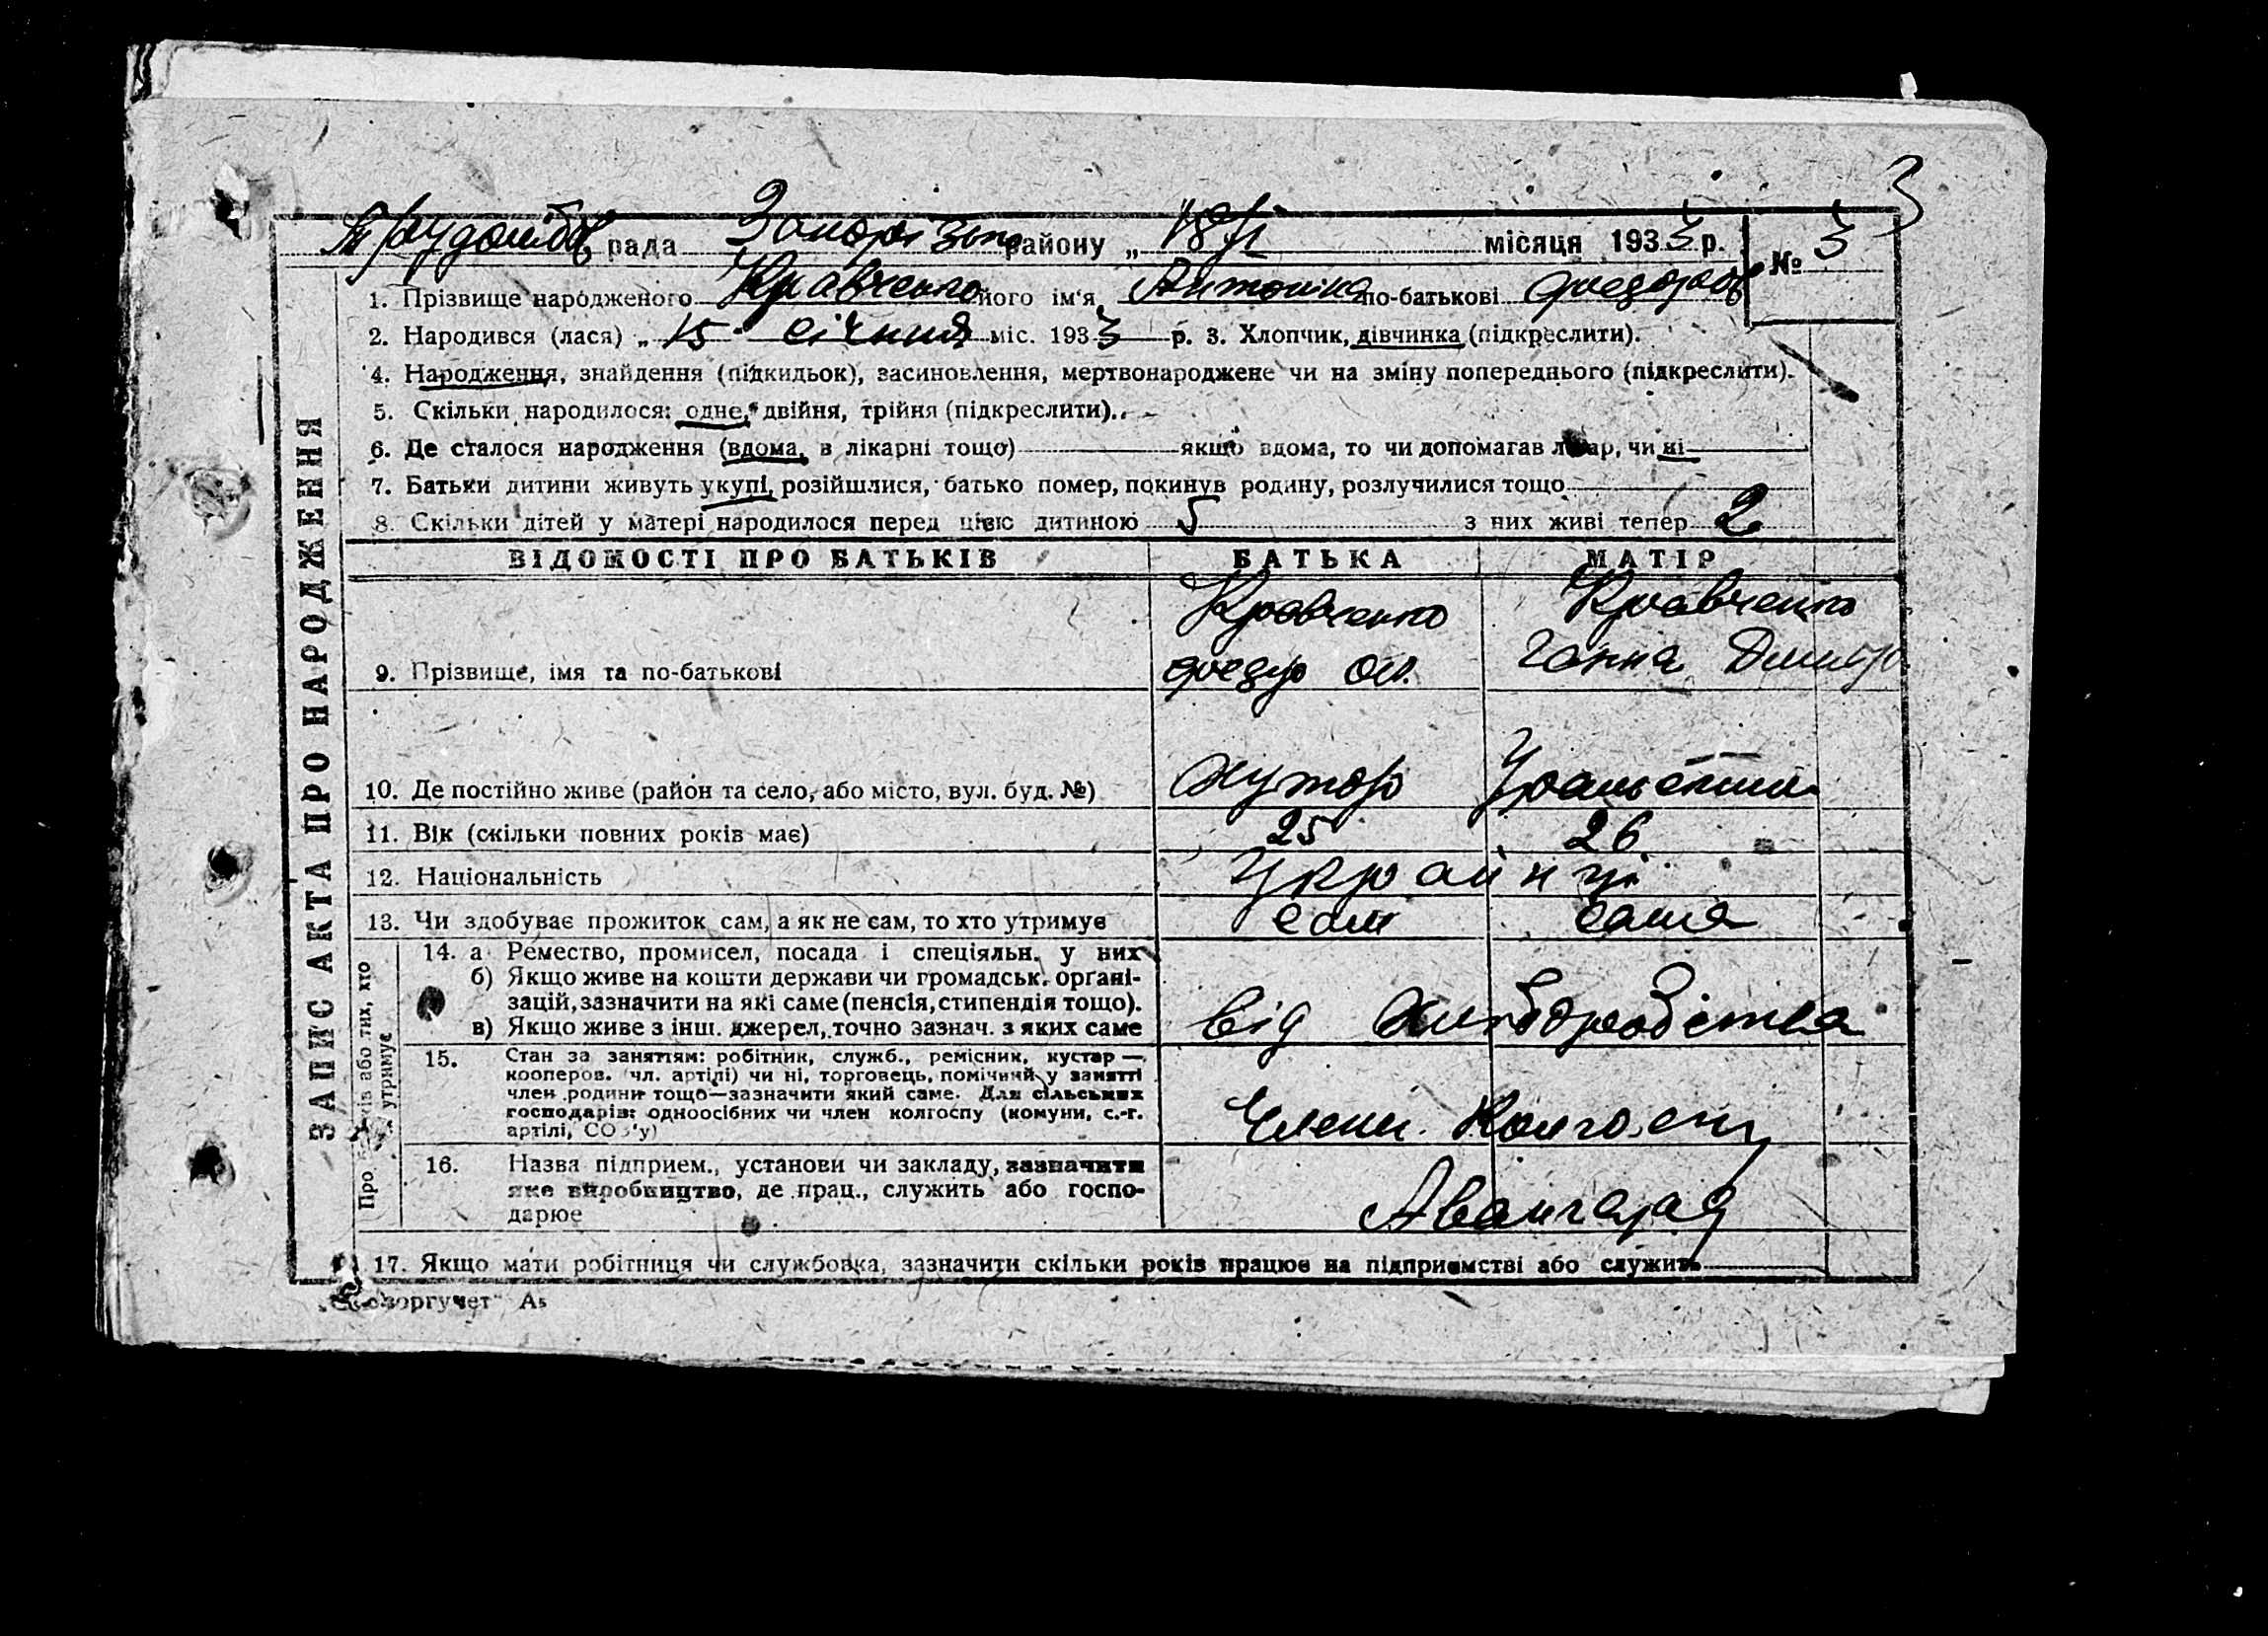 3
рада Запорізьк району „ 18/I місяця 1933 р. № 3
1. Прізвище народженого Кравченко його ім'я Антоніна по-батькові Федоров
2. Народився (лася) „ 15 січния міс. 1933 р. 3. Хлопчик, дівчинка (підкреслити).
4. Народження, знайдення (підкидьок), засиновлення, мертвонароджене чи на зміну попереднього (підкреслити).
5. Скільки народилося: одне, двійня, трійня (підкреслити).
6. Де сталося народження (вдома, в лікарні тощо) якщо вдома, то чи допомагав лікар, чи ні
7. Батьки дитини живуть укупі, розійшлися, батько помер, покинув родину, розлучилися тощо
8. Скільки дітей у матері народилося перед цією дитиною 5 з них живі тепер 2
ВІДОМОСТІ ПРО БАТЬКІВ БАТЬКА МАТІР
Кравченко Кравченко
9. Прізвище, імя та по-батькові Федор Ол. Ганна Дмитр
10. Де постійно живе (район та село, або місто, вул. буд. №) Хутор
11. Вік (скільки повних років має) 25 26
12. Національність Українці
13. Чи здобуває прожиток сам, а як не сам, то хто утримує сам сама
14. а Ремество, промисел, посада і спеціяльн. у них
б) Якщо живе на кошти держави чи громадськ. органі-
зацій, зазначити на які саме (пенсія, стипендія тощо).
в) Якщо живе з інш. джерел, точно зазнач. з яких саме від хліборобства
15. Стан за заняттям: робітник, служб., ремісник, кустар —
кооперов. чл. артілі) чи ні, торговець, помічний у занятті
член родини тощо—зазначити який саме. Для сільських
господарів: одноосібних чи член колгоспу (комуни, с.-г.
артілі, СОЗ'у) Члени Колгоспу
16. Назва підприєм., установи чи закладу, зазначити
яке виробництво, де прац., служить або госпо-
дарює Авангард
17. Якщо мати робітниця чи службовка, зазначити скільки років працює на підприємстві або служить
ЗАПИС АКТА ПРО НАРОДЖЕННЯ
Про батьків або тих, хто
утримує
„Союзоргучет"